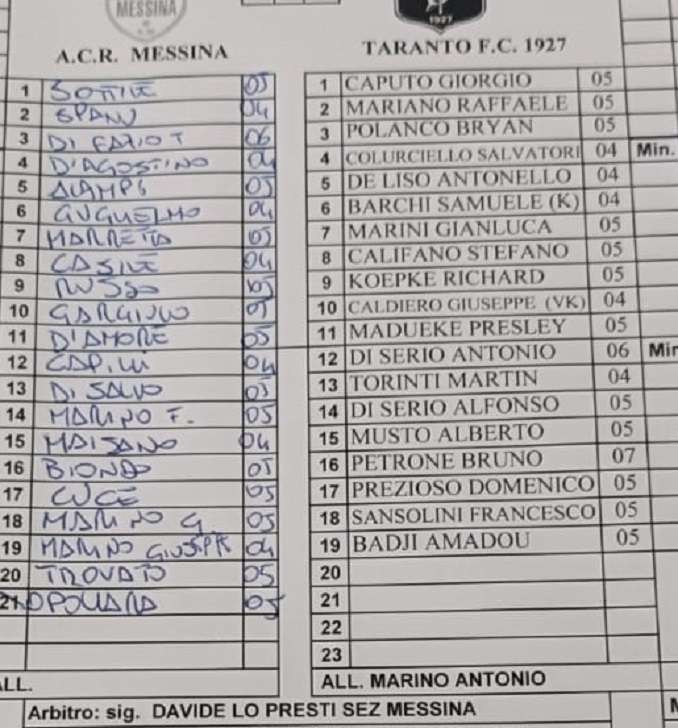 MESSINA
1927
A.C.R. MESSINA
TARANTO F.C. 1927
1 SOTTILE 05
2 SPANÒ 04
3 DI FAZIO T 06
4 D'AGOSTINO 04
5 ALAMPI 05
6 GUGUELMO 04
7 MARRETTA 05
8 CASILE 04
9 RUSSO 05
10 GARGIULO 05
11 D'AMORE 05
12 CAPILLI 04
13 DI SALVO 05
14 MARINO F. 05
15 MAISANO 04
16 BIONDO 05
17 LUCE 05
18 MARINO G. 05
19 MARINO GIUSEPPE 04
20 TROVATO 05
21 05
ALL.
1 CAPUTO GIORGIO 05
2 MARIANO RAFFAELE 05
3 POLANCO BRYAN 05
4 COLURCIELLO SALVATORI 04 Min.
5 DE LISO ANTONELLO 04
6 BARCHI SAMUELE (K) 04
7 MARINI GIANLUCA 05
8 CALIFANO STEFANO 05
9 KOEPKE RICHARD 05
10 CALDIERO GIUSEPPE (VK) 04
11 MADUEKE PRESLEY 05
12 DI SERIO ANTONIO 06 Min
13 TORINTI MARTIN 04
14 DI SERIO ALFONSO 05
15 MUSTO ALBERTO 05
16 PETRONE BRUNO 07
17 PREZIOSO DOMENICO 05
18 SANSOLINI FRANCESCO 05
19 BADJI AMADOU 05
20
21
22
23
ALL. MARINO ANTONIO
Arbitro: sig. DAVIDE LO PRESTI SEZ MESSINA